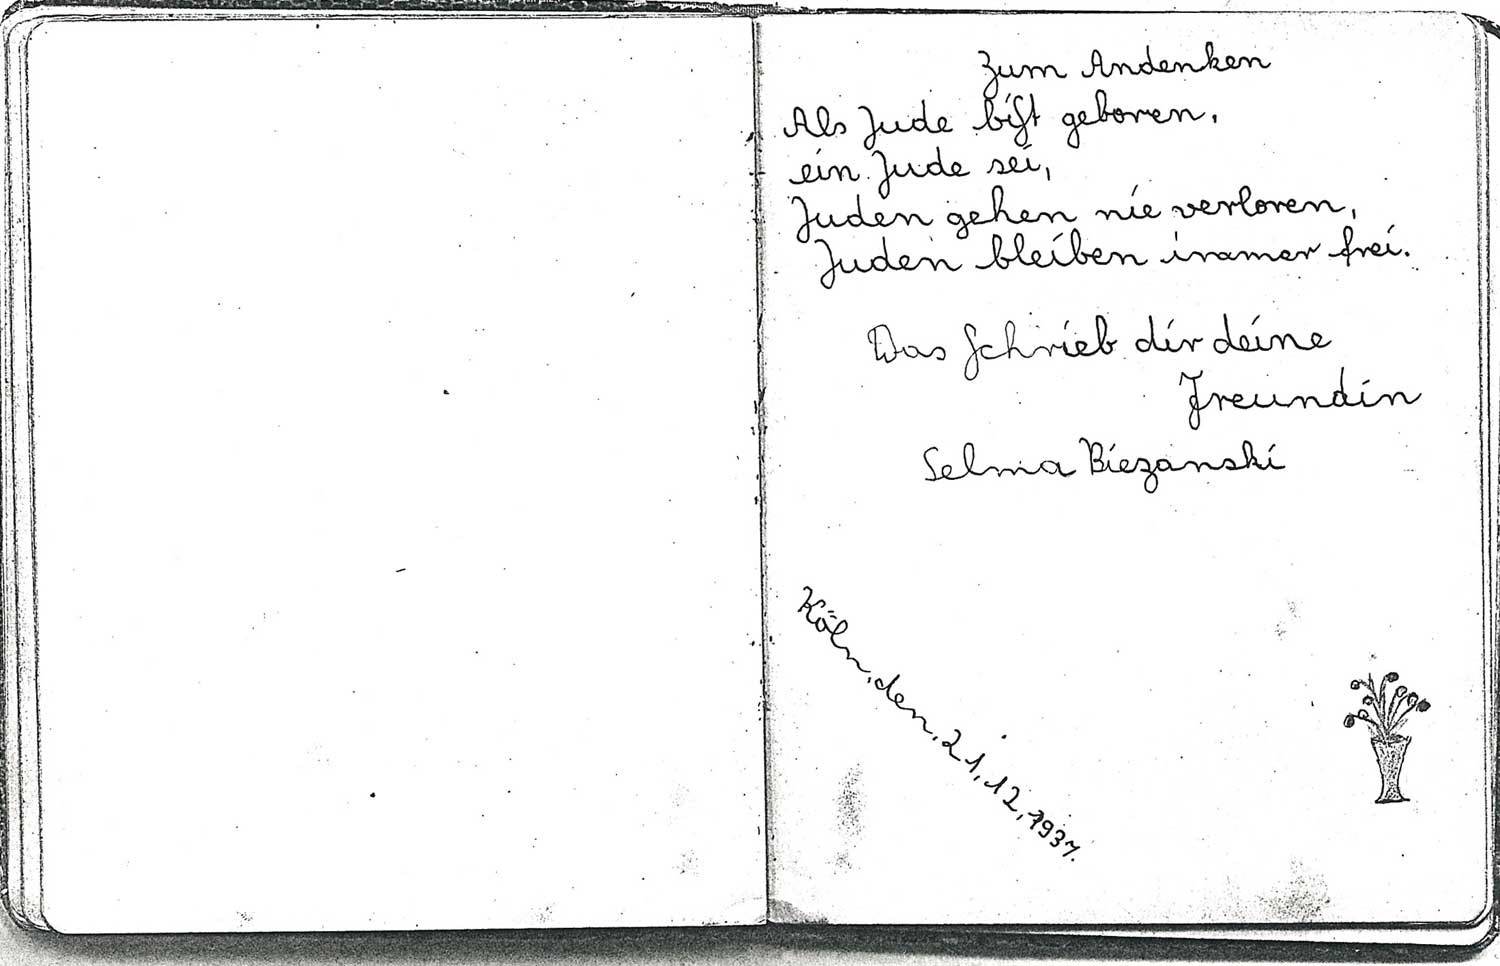 Zum Andenken
Als Jude bist geboren,
ein Jude sei,
Juden gehen nie verloren,
Juden bleiben immer frei.
Das schrieb dir deine
Freundin
Selma Biezanski
Köln, den, 21, 12, 1937.